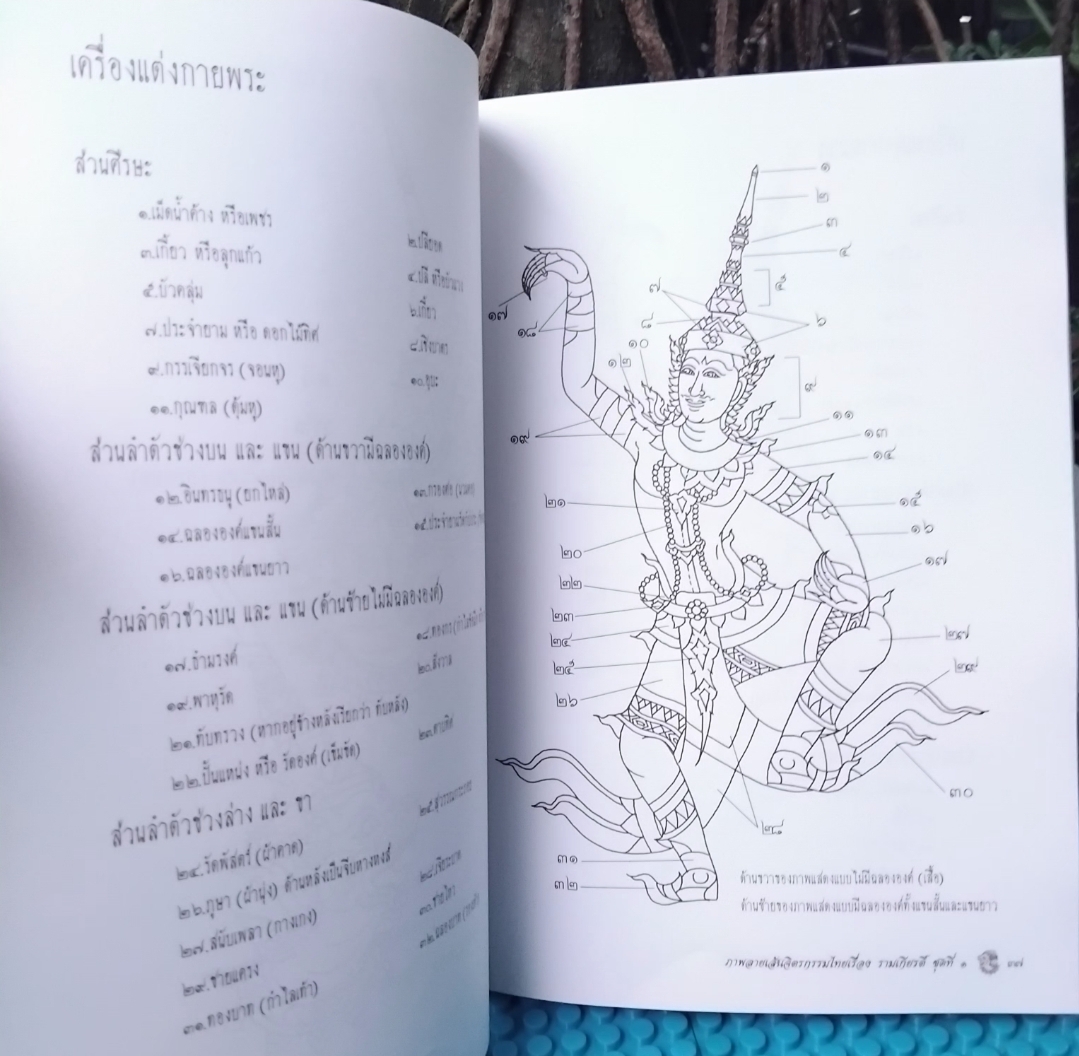 เครื่องแต่งกายพระ
ส่วนศีรษะ
๑.เม็ดน้ำค้าง หรือเพชร ๒.ปลียอด
๓.เกี้ยว หรือลูกแก้ว ๔.ปลี หรือ
๕.บัวคลุ่ม ๖.เกี้ยว
๗.ประจำยาม หรือ ดอกไม้ทิศ ๘.เชิงบาตร
๙.กรรเจียกจร (จอนหู) ๑๐.
๑๑.กุณฑล (ตุ้มหู)
ส่วนลำตัวช่วงบน และ แขน (ด้านขวามีฉลององค์)
๑๒.อินทรธนู (ยกไหล่) ๑๓.กรองศอ
๑๔.ฉลององค์แขนสั้น ๑๕.
๑๖.ฉลององค์แขนยาว
ส่วนลำตัวช่วงบน และ แขน (ด้านซ้ายไม่มีฉลององค์)
๑๗.ธำมรงค์ ๑๘.ทองกร
๑๙.พาหุรัด ๒๐.สังวาล
๒๑.ทับทรวง (หากอยู่ข้างหลังเรียกว่า ทับหลัง)
๒๒.ปั้นเหน่ง หรือ รัดองค์ (เข็มขัด) ๒๓.ตาบทิศ
ส่วนลำตัวช่วงล่าง และ ขา
๒๔.รัดพัสตร์ (ผ้าคาด) ๒๕.
๒๖.ภูษา (ผ้านุ่ง) ด้านหลังเป็นจีบหางหงส์
๒๗.สนับเพลา (กางเกง) ๒๘.
๒๙.ชายแครง ๓๐.ชายไหว
๓๑.ทองบาท (กำไลเท้า) ๓๒.
๑
๒
๓
๔
๕
๗
๖
๘
๑๗
๑๘
๑๐
๑๒
๙
๑๑
๑๓
๑๙
๑๔
๒๑
๑๕
๑๖
๒๐
๑๗
๒๒
๒๓
๒๔
๒๗
๒๕
๒๙
๒๖
๓๐
๒๘
๓๑
๓๒
ด้านขวาของภาพแสดงแบบไม่มีฉลององค์ (เสื้อ)
ด้านซ้ายของภาพแสดงแบบมีฉลององค์ทั้งแขนสั้นและแขนยาว
ภาพลายเส้นจิตรกรรมไทยเรื่อง รามเกียรติ์ ชุดที่ ๑